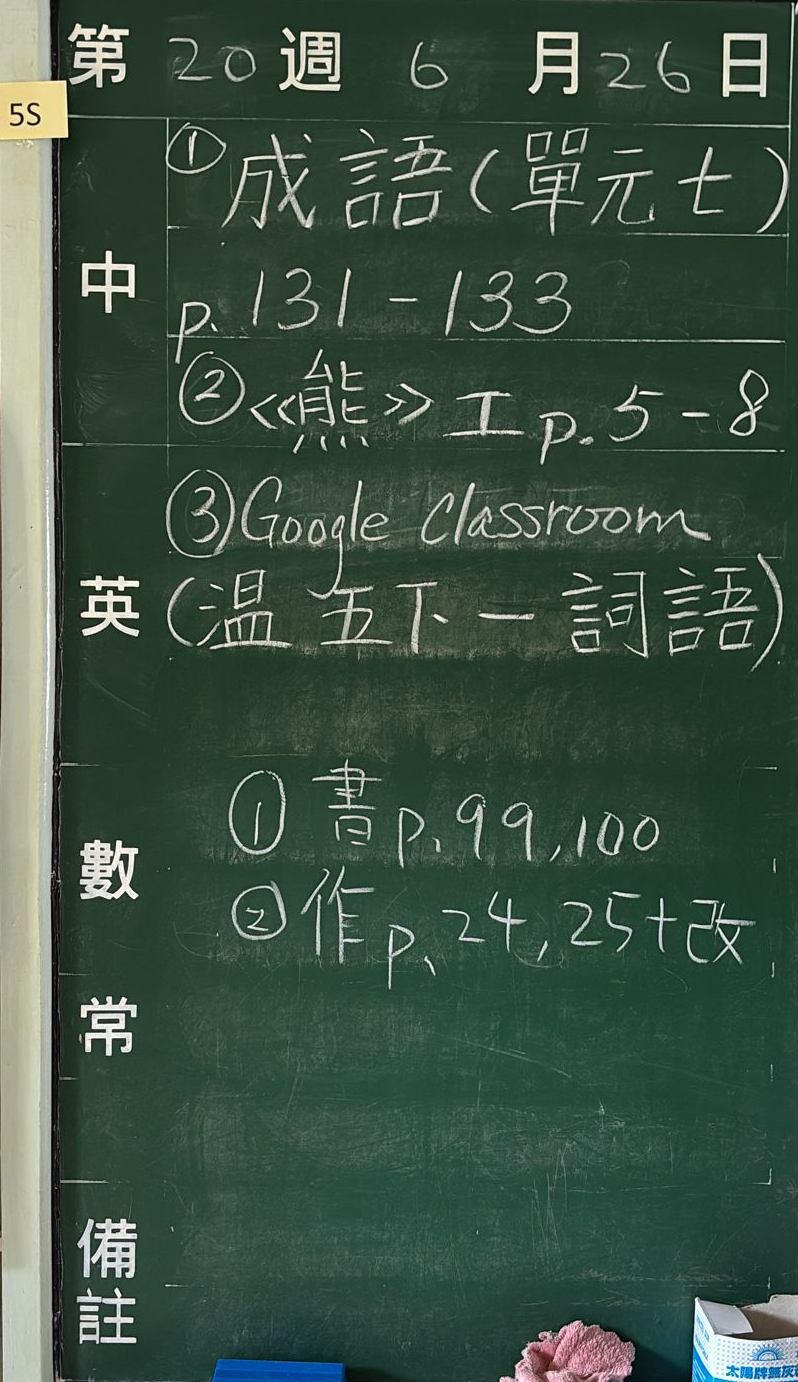 第 20 週 6 月 26 日
5S
中
① 成語(單元七)
p. 131 - 133
② 《熊》工 p. 5 - 8
英
③ Google Classroom
(温 五下一 詞語)
數
① 書 p. 99, 100
② 作 p. 24, 25 + 改
常
備註
太陽牌無灰